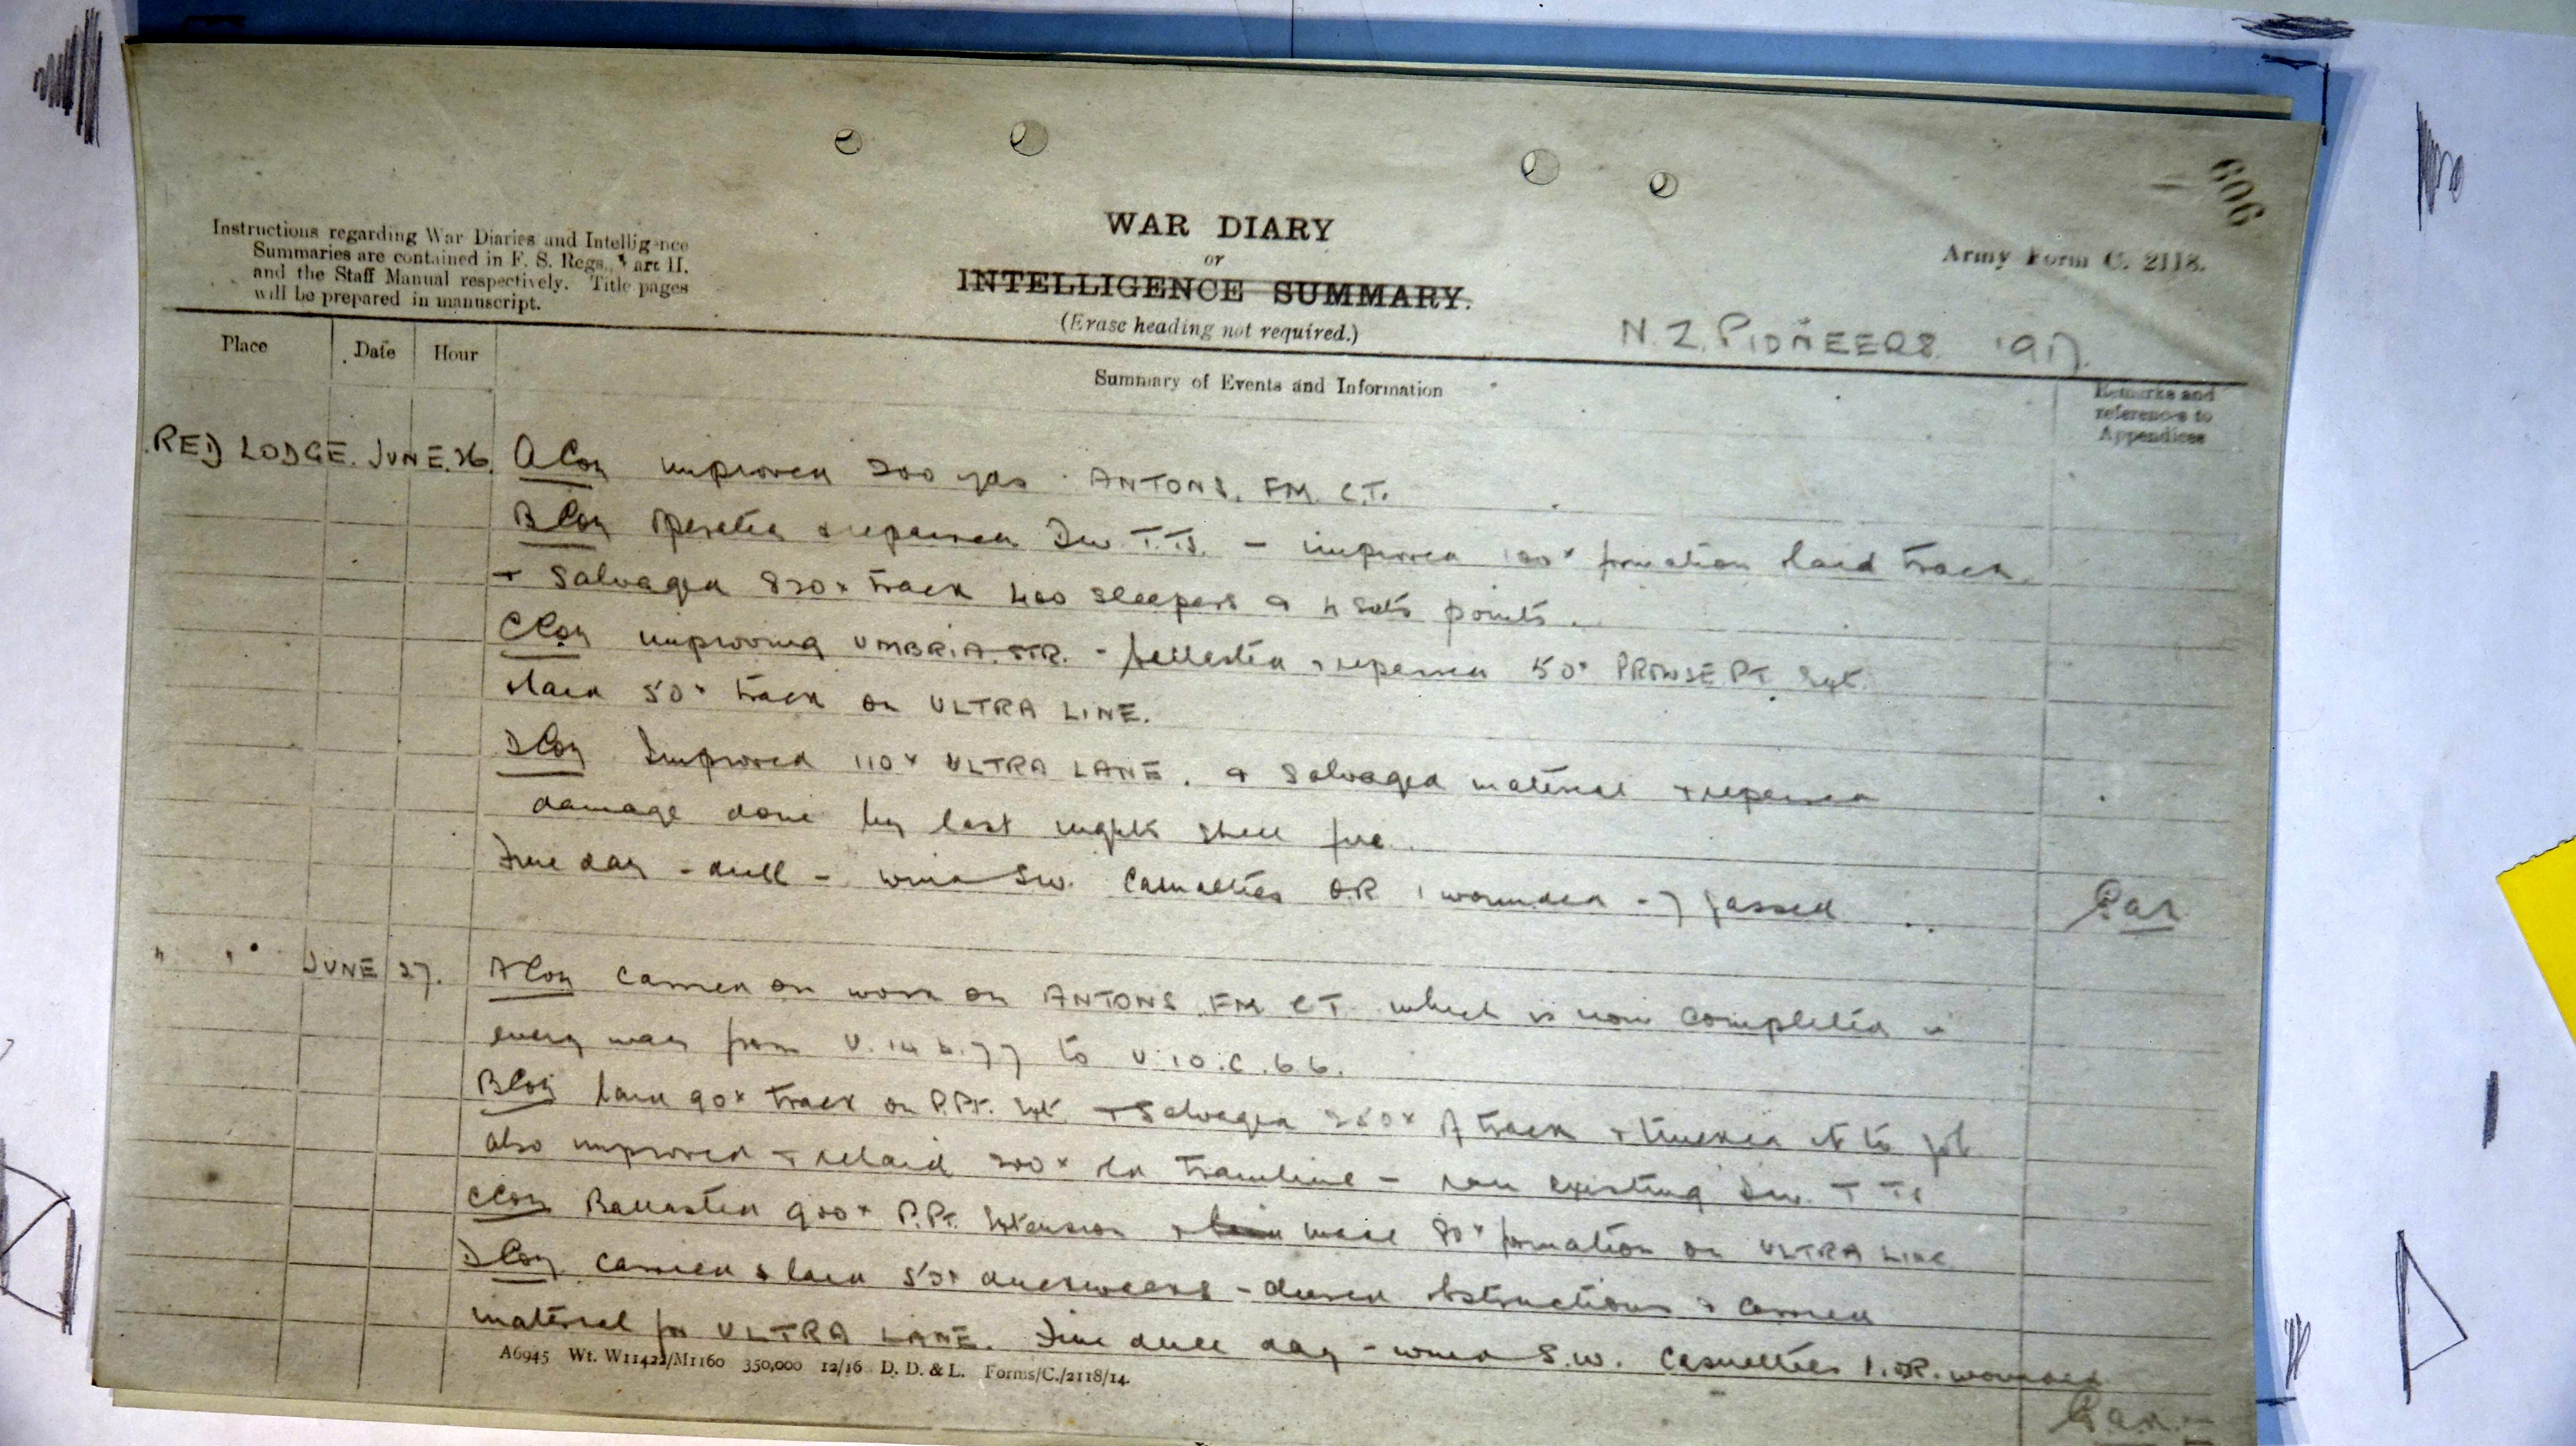 606
Instructions regarding War Diaries and Intelligence
Summaries are contained in F. S. Regs., Part II.
and the Staff Manual respectively. Title pages
will be prepared in manuscript.
WAR DIARY
or
INTELLIGENCE SUMMARY.
(Erase heading not required.)
Army Form C. 2118.
N.Z. PIONEERS 1917.
Place Date Hour
Summary of Events and Information
Remarks and
references to
Appendices
RED LODGE. JUNE. 26. A Coy improved 200 yds ANTONS. FM. C.T.
B Coy operated & repaired Div. T.Ts. - improved 100x formation laid track
+ salvaged 820x track 400 sleepers & 4 sets points.
C Coy improving UMBRIA. STR. - ballasted & repaired 50x PROWSE PT Ext.
& laid 50x track on ULTRA LINE.
D Coy Improved 110x ULTRA LANE. & salvaged material & repaired
damage done by last nights shell fire.
Fine day - dull - wind S.W. Casualties O.R 1 wounded - 7 gassed
" " JUNE 27. A Coy carried on work on ANTONS FM CT which is now completed in
every way from U.14.b.77 to U.10.C.66.
B Coy laid 90x track on P.Pt. Ext. + Salvaged 250x of track & trucked it to job
also improved & relaid 200x old tramline - ran existing Div. T Ts
C Coy Ballasted 900x P.Pt. Extension & made 80x formation on ULTRA LINE
D Coy carried & laid 50x duckwalks - cleared obstructions & carried
material for ULTRA LANE. Fine dull day - wind S.W. Casualties 1. OR. wounded
A6945 Wt. W11422/M1160 350,000 12/16 D. D. & L. Forms/C./2118/14.